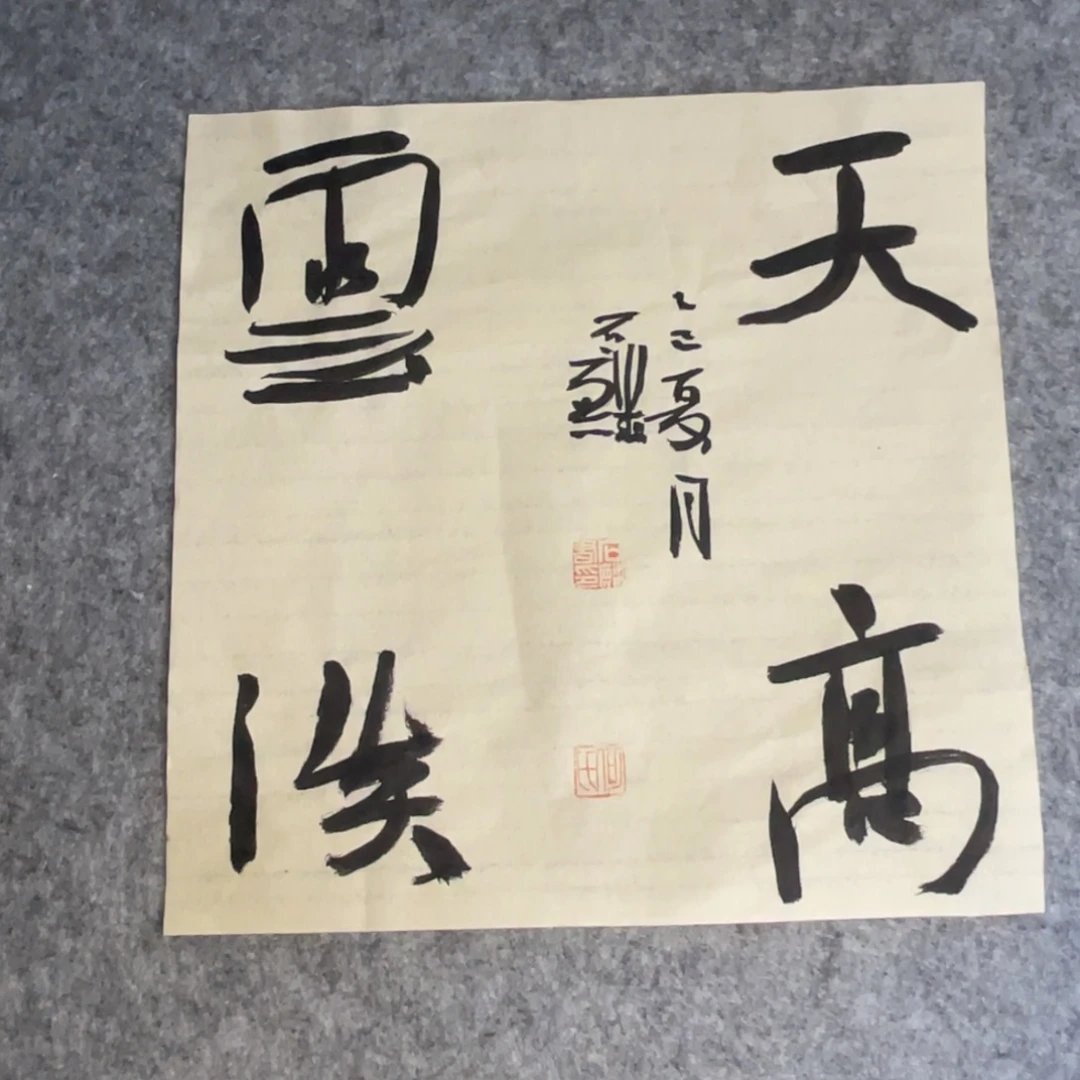 天高
雲淡
乙巳夏月
石